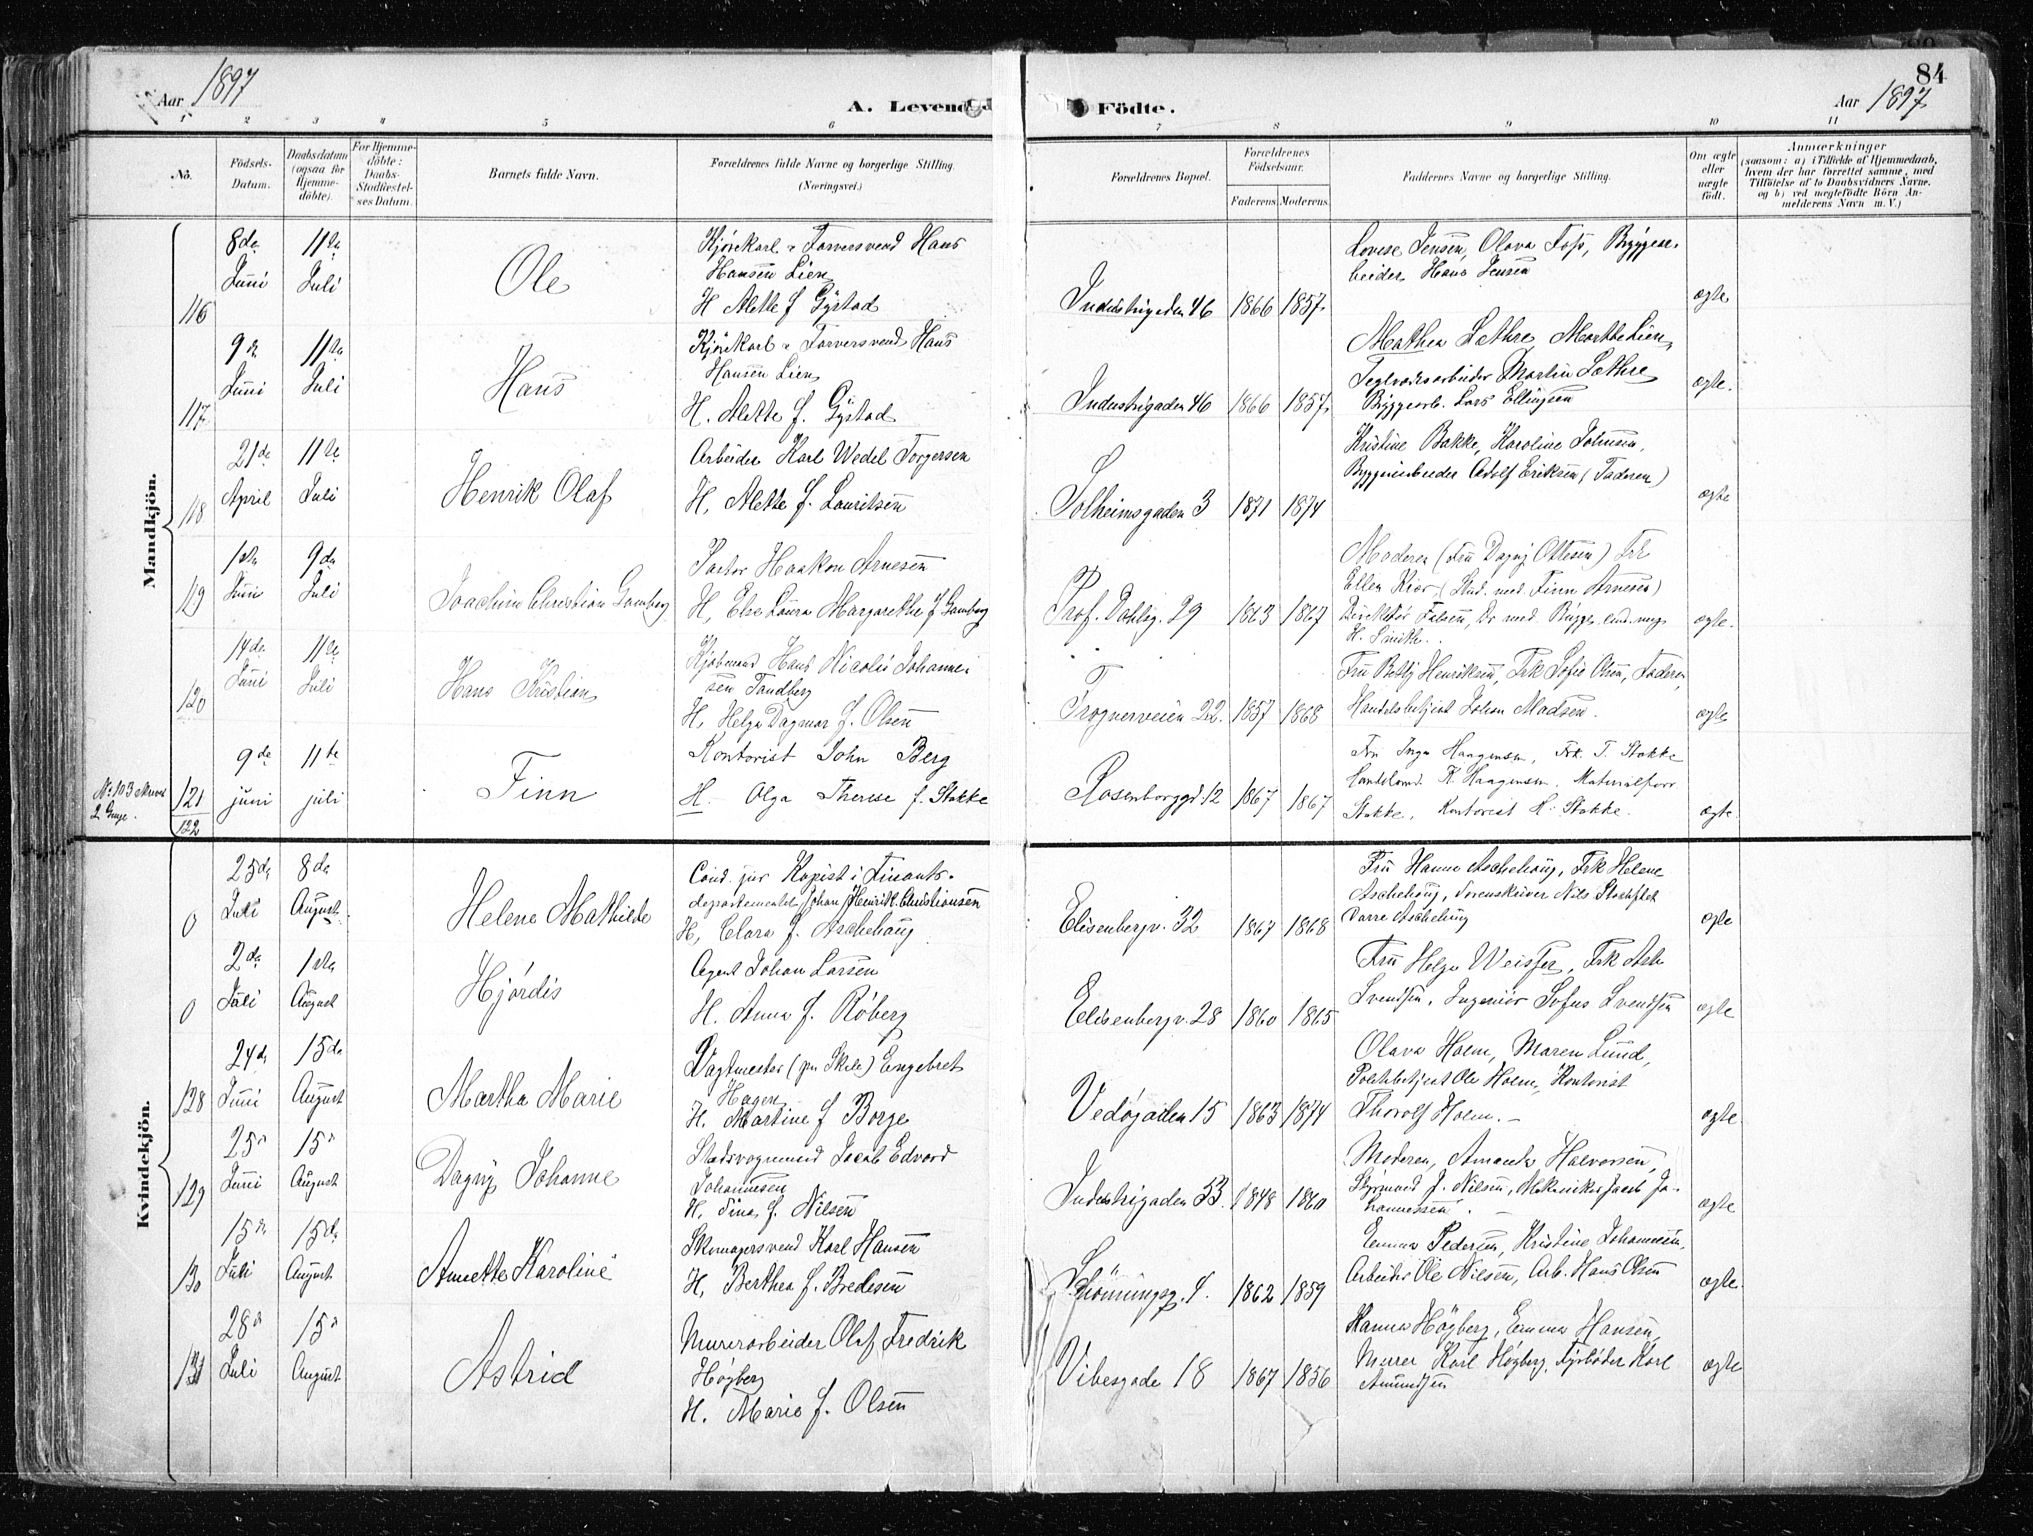 84
Aar 1897
A. Levende Födte.
Aar 1897
1 2 3 4 5 6 7 8 9 10 11
No.
Födsels-Datum.
Daabsdatum (ogsaa for Hjemme-döbte).
For Hjemme-döbte: Daabs-Stadfæstel-ses Datum.
Barnets fulde Navn.
Forældrenes fulde Navne og borgerlige Stilling. (Næringsvei.)
Forældrenes Bopæl.
Forældrenes Födselsaar.
Faderens. Moderens.
Faddernes Navne og borgerlige Stilling.
Om ægte eller uægte födt.
Anmærkninger
(saasom: a) i Tilfælde af Hjemmedaab,
hvem der har forrettet samme, med
Tilföielse af to Daabsvidners Navne,
og b) ved uægtefödte Börn An-
melderens Navn m. V.)
Mandkjön.
116 8de Juni 11te Juli Ole
Kjörekarl Farversvend Hans
Hansen Lien
H. Alette f. Gystad
Industrigaden 46 1866 1857
Lovise Jensen, Olava Foss, Bryggear-
beider Hans Jensen
ægte
117 9de Juni 11te Juli Hans
Kjörekarl Farversvend Hans
Hansen Lien
H. Alette f. Gystad
Industrigaden 46 1866 1857
Mathea Lethre Marthe Lien,
Martin Lethre
Bryggearb. Lars Ellingsen
ægte.
118 21de April 11te Juli Henrik Olaf
Arbeider Karl Wedel Torgersen
H. Alette f. Lauritsen
Solheimsgaden 3 1871 1874
Kristine Bakke, Karoline Johnsen,
Bryggeriarbeider Adolf Eriksen (Faderen)
ægte
119 1ste Juni 9de Juli Joachim Christian Gamborg
Pastor Haakon Arnesen
H. Else Laura Margarethe f. Gamborg
Prof. Dahlsg. 29 1863 1867
Moderen (Fru Dagny Ottesen) Frk
Ellen Kiær (Stud. med. Finn Arnesen)
Direktör Falsen, Dr med. Brygge, cand. mag.
H. Smith.
ægte.
120 14de Juni 11te Juli Hans Kristian
Kjöbmand Hans Nicolai Johanne-
sen Tandberg
H. Helga Dagmar f. Olsen
Frognerveien 22. 1857 1868
Fru Betsy Henriksen, Frk Sofie Olsen, Faderen,
Handelsbetjent Johan Madsen.
ægte
No 103 skrevet 2 Gange.
121
122
9de juni 11te juli Finn
Kontorist John Berg
H. Olga Therese f. Stokke
Rosenborggd. 12 1867 1867
Fru Inga Haagensen, Frk. T. Stokke
Handelsmd. K. Haagensen. Materialforv
Stokke, Kontorist H. Stokke.
ægte
Kvindekjön.
0 25de Juli 8de August Helene Mathilde
Cand. jur Kopist i Finants-
departementet Johan Henrik Christiansen
H. Clara f. Aschehoug
Elisenbergv. 32 1867 1868
Fru Hanna Aschehoug, Frk Helene
Aschehoug, Sorenskriver Nils Stockfleth
Darre Aschehoug
ægte
0 2de Juli 1ste August Hjördis
Agent Johan Larsen
H. Anna f. Röberg
Elisenbergv. 28 1860 1865
Fru Helga Weisser, Frk Asta
Svendsen, Ingeniör Sofus Svendsen
ægte
128 24de Juni 15de August Martha Marie
Vagtmester Engebret
Hagen
H. Martine f Borge
Vedöjaden 15 1863 1874
Olava Holm, Maren Lund,
Politibetjent Ole Holm, Kontorist
Thorolf Holm.
ægte.
129 25de Juni 15de August Dagny Johanne
Stadsvognmand Jacob Edvard
Johannesen
H. Tina f. Nilsen
Industrigaden 53. 1848 1860
Moderen, Amanda Halvorsen,
Styrmand J. Nilsen, Mekaniker Jacob Jo-
hannessen.
ægte
130 15de Juli 15de August Annette Karoline
Skomagersvend Karl Hansen
H. Berthea f. Bredesen
Schönningsg. 4. 1862 1859
Emma Pedersen, Kristine Johannesen,
Arbeider Ole Nilsen, Arb. Hans Olsen
ægte.
131 28de Juli 15de August Astrid
Murerarbeider Olaf Fredrik
Högberg
H. Marie f. Olsen
Vibesgade 18 1867 1856
Hanna Högberg, Emma Hansen,
Murer Karl Högberg, Fyrböder Karl
Amundsen
ægte